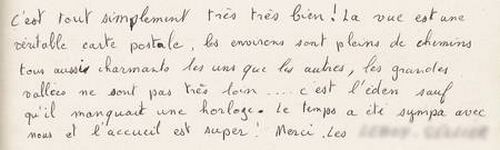 C'est tout simplement très très bien ! La vue est une
véritable carte postale, les environs sont pleins de chemins
tous aussi charmants les uns que les autres, les grandes
vallées ne sont pas très loin .... c'est l'éden sauf
qu'il manquait une horloge. Le temps a été sympa avec
nous et l'accueil est super ! Merci. Les